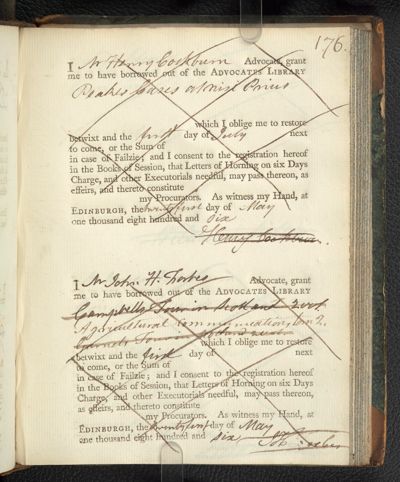 176.
I Mr Henry Cockburn Advocate, grant
me to have borrowed out of the ADVOCATES LIBRARY
Peakes Cases at Nisi Prius
which I oblige me to restore
betwixt and the first day of July next
to come, or the Sum of
in case of Failzie; and I consent to the registration hereof
in the Books of Session, that Letters of Horning on six Days
Charge, and other Executorials needful, may pass thereon, as
effeirs, and thereto constitute
my Procurators. As witness my Hand, at
EDINBURGH, the twenty first day of May
one thousand eight hundred and six
Henry Cockburn.
I Mr John H. Forbes Advocate, grant
me to have borrowed out of the ADVOCATES LIBRARY
Campbells Tour in Scotland 2 vol.
Agricultural Communications
which I oblige me to restore
betwixt and the first day of next
to come, or the Sum of
in case of Failzie; and I consent to the registration hereof
in the Books of Session, that Letters of Horning on six Days
Charge, and other Executorials needful, may pass thereon,
as effeirs, and thereto constitute
my Procurators. As witness my Hand, at
EDINBURGH, the twenty first day of May
one thousand eight hundred and six
Forbes